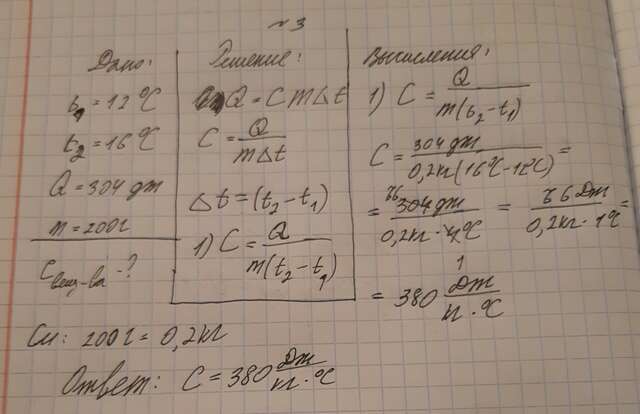 №3
Дано:
t₁ = 12°C
t₂ = 16°C
Q = 304 дж
m = 200г
C вещ-ва - ?
Си: 200г = 0,2кг
Решение:
Q = C m Δt
C = Q / mΔt
Δt = (t₂ - t₁)
1) C = Q / m(t₂ - t₁)
Вычисления:
1) C = Q / m(t₂ - t₁)
C = 304 дж / 0,2кг(16°C - 12°C) =
= 76 304 дж / 0,2кг · 4°C 1 = 76 Дж / 0,2кг · 1°C =
= 380 Дж / кг · °C
Ответ: C = 380 Дж / кг · °C